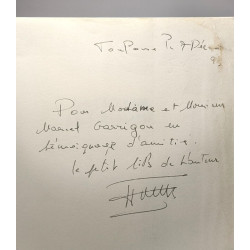 Toulouse le 7 Déc
Pour Madame et Monsieur
Marcel Garrigou en
témoignage d'amitié.
le petit fils de l'auteur